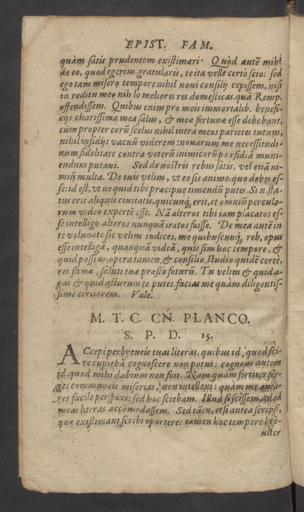 EPIST. FAM.
quàm satis prudentem existimari. Quòd autē mihi
de eo, quod egerim, gratularis, te ita velle certò scio: sed
ego tam misero tempore nihil noui consilij cepissem, nisi
in reditu meo nihilo meliores res domesticas, quā Remp.
offendissem. Quibus enim pro meis immortalib. benefi-
cijs charissima mea salus, & mea fortuna esse debebant,
cum propter eorū scelus nihil intra meos parietes tutum,
nihil insidijs vacuū viderem: nouarum me necessitudi-
num fidelitate contra veterū inimicorū perfidiā muni-
endum putaui. Sed de nostris rebus satis, vel etiā ni-
miū multa. De tuis velim, vt eo sis animo, quo debes es-
se: id est, vt ne quid tibi præcipuè timendū putes. Si n. sta-
tus erit aliquis ciuitatis, quicunq; erit, et omniū pericula-
rum video expertē esse. Nā alteros tibi iam placatos es-
se intelligo alteros nunquā iratos fuisse. De mea autē in
te voluntate sic velim iudices, me quibuscunq; reb. opus
esse intelligā, quanquā videā, qui sim hoc tempore, &
quid possim: opera tamen, & consilio, studio quidē certè,
rei famæ, saluti tuæ præstò futurū. Tu velim & quid a-
gas & quid acturum te putes, facias me quàm diligentis-
simè certiorem. Vale.
M. T. C. CN. PLANCO.
S. P. D. 15.
ACcepi perbreueis tuas literas, quibus id, quod sci-
re cupiebā cognoscere non potui: cognoui autem
id quod mihi dubium non fuit. Nam quàm fortiter fer-
res communeis miserias, non intellexi: quàm me ama-
res facile perspexi: sed hoc sciebam. Illud si scissem, ad id
meas literas accōmodassem. Sed tamē, etsi antea scripsi,
quæ existimaui scribi oportere: tamen hoc tempore bre-
uiter